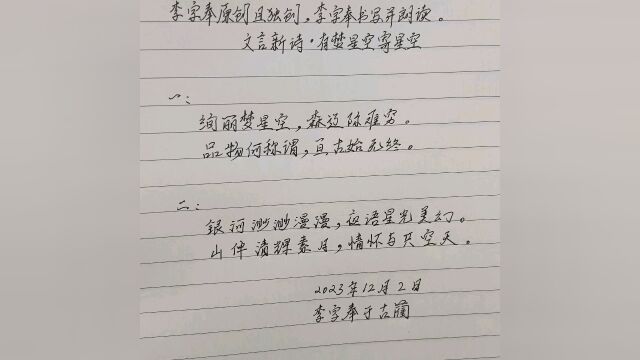 李字奉原创且独创。李字奉书写并朗读。
文言新诗·有梦星空寄星空
一:
绚丽梦星空,森边际难穷。
品物何称谓,亘古始无终。
二:
银河渺渺漫漫,夜语星光美幻。
山伴清辉素月,情怀与共空天。
2023年12月2日
李字奉于古蔺